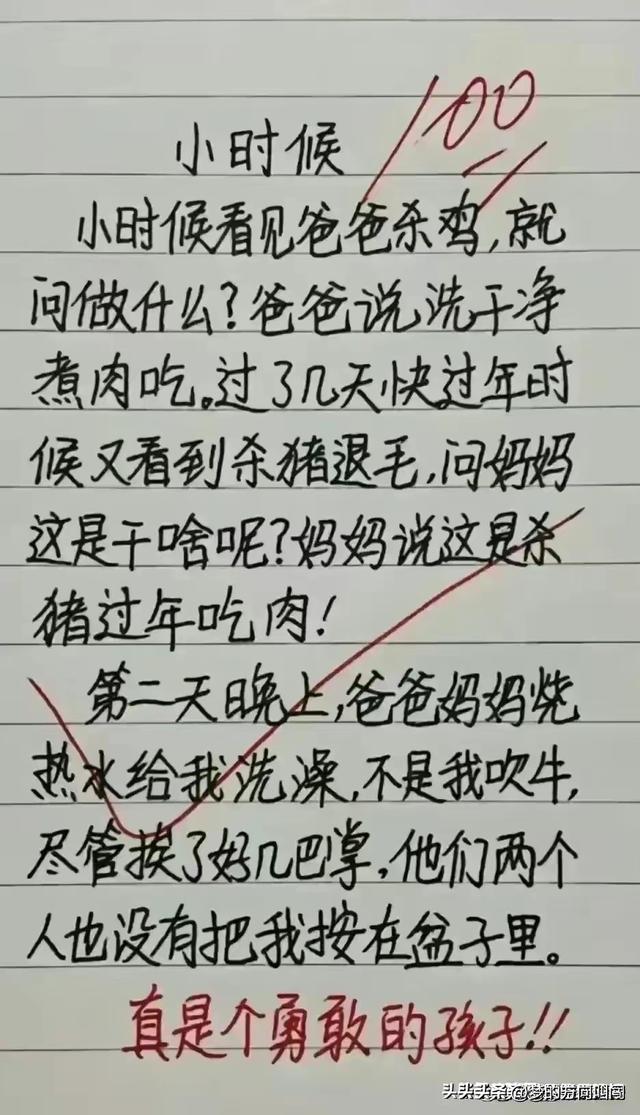 100
小时候
小时候看见爸爸杀鸡,就
问做什么?爸爸说洗干净
煮肉吃。过了几天快过年时
候又看到杀猪退毛,问妈妈
这是干啥呢?妈妈说这是杀
猪过年吃肉!
第二天晚上,爸爸妈妈烧
热水给我洗澡,不是我吹牛,
尽管挨了好几巴掌,他们两个
人也没有把我按在盆子里。
真是个勇敢的孩子!!